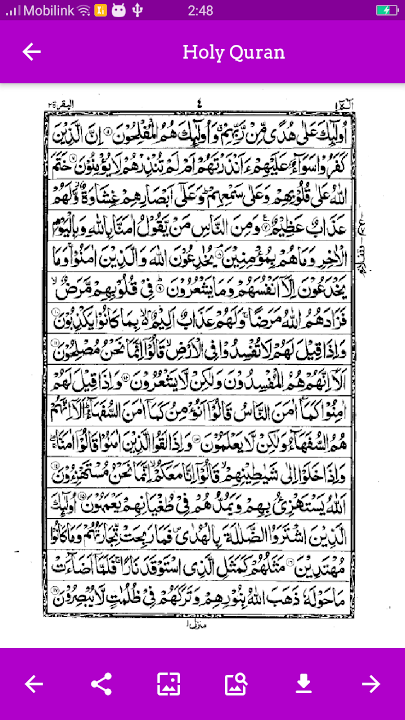 Mobilink 2:48
Holy Quran
البقرة ٢ ٤ الٓمّٓ ١
اُولٰٓئِكَ عَلٰى هُدًى مِّنْ رَّبِّهِمْ وَاُولٰٓئِكَ هُمُ الْمُفْلِحُوْنَ ۝ اِنَّ الَّذِيْنَ
كَفَرُوْا سَوَآءٌ عَلَيْهِمْ ءَاَنْذَرْتَهُمْ اَمْ لَمْ تُنْذِرْهُمْ لَا يُؤْمِنُوْنَ ۝ خَتَمَ
اللّٰهُ عَلٰى قُلُوْبِهِمْ وَعَلٰى سَمْعِهِمْ وَعَلٰٓى اَبْصَارِهِمْ غِشَاوَةٌ وَّلَهُمْ
عَذَابٌ عَظِيْمٌ ۝ وَمِنَ النَّاسِ مَنْ يَّقُوْلُ اٰمَنَّا بِاللّٰهِ وَبِالْيَوْمِ
الْاٰخِرِ وَمَا هُمْ بِمُؤْمِنِيْنَ ۝ يُخٰدِعُوْنَ اللّٰهَ وَالَّذِيْنَ اٰمَنُوْا وَمَا
يَخْدَعُوْنَ اِلَّآ اَنْفُسَهُمْ وَمَا يَشْعُرُوْنَ ۝ فِيْ قُلُوْبِهِمْ مَّرَضٌ
فَزَادَهُمُ اللّٰهُ مَرَضًا وَلَهُمْ عَذَابٌ اَلِيْمٌ بِمَا كَانُوْا يَكْذِبُوْنَ ۝
وَاِذَا قِيْلَ لَهُمْ لَا تُفْسِدُوْا فِى الْاَرْضِ قَالُوْٓا اِنَّمَا نَحْنُ مُصْلِحُوْنَ ۝
اَلَآ اِنَّهُمْ هُمُ الْمُفْسِدُوْنَ وَلٰكِنْ لَّا يَشْعُرُوْنَ ۝ وَاِذَا قِيْلَ لَهُمْ
اٰمِنُوْا كَمَآ اٰمَنَ النَّاسُ قَالُوْٓا اَنُؤْمِنُ كَمَآ اٰمَنَ السُّفَهَآءُ اَلَآ اِنَّهُمْ
هُمُ السُّفَهَآءُ وَلٰكِنْ لَّا يَعْلَمُوْنَ ۝ وَاِذَا لَقُوا الَّذِيْنَ اٰمَنُوْا قَالُوْٓا اٰمَنَّا
وَاِذَا خَلَوْا اِلٰى شَيٰطِيْنِهِمْ قَالُوْٓا اِنَّا مَعَكُمْ اِنَّمَا نَحْنُ مُسْتَهْزِءُوْنَ ۝
اَللّٰهُ يَسْتَهْزِئُ بِهِمْ وَيَمُدُّهُمْ فِيْ طُغْيَانِهِمْ يَعْمَهُوْنَ ۝ اُولٰٓئِكَ
الَّذِيْنَ اشْتَرَوُا الضَّلٰلَةَ بِالْهُدٰى فَمَا رَبِحَتْ تِّجَارَتُهُمْ وَمَا كَانُوْا
مُهْتَدِيْنَ ۝ مَثَلُهُمْ كَمَثَلِ الَّذِى اسْتَوْقَدَ نَارًا فَلَمَّآ اَضَآءَتْ
مَا حَوْلَهٗ ذَهَبَ اللّٰهُ بِنُوْرِهِمْ وَتَرَكَهُمْ فِيْ ظُلُمٰتٍ لَّا يُبْصِرُوْنَ ۝
منزل ١